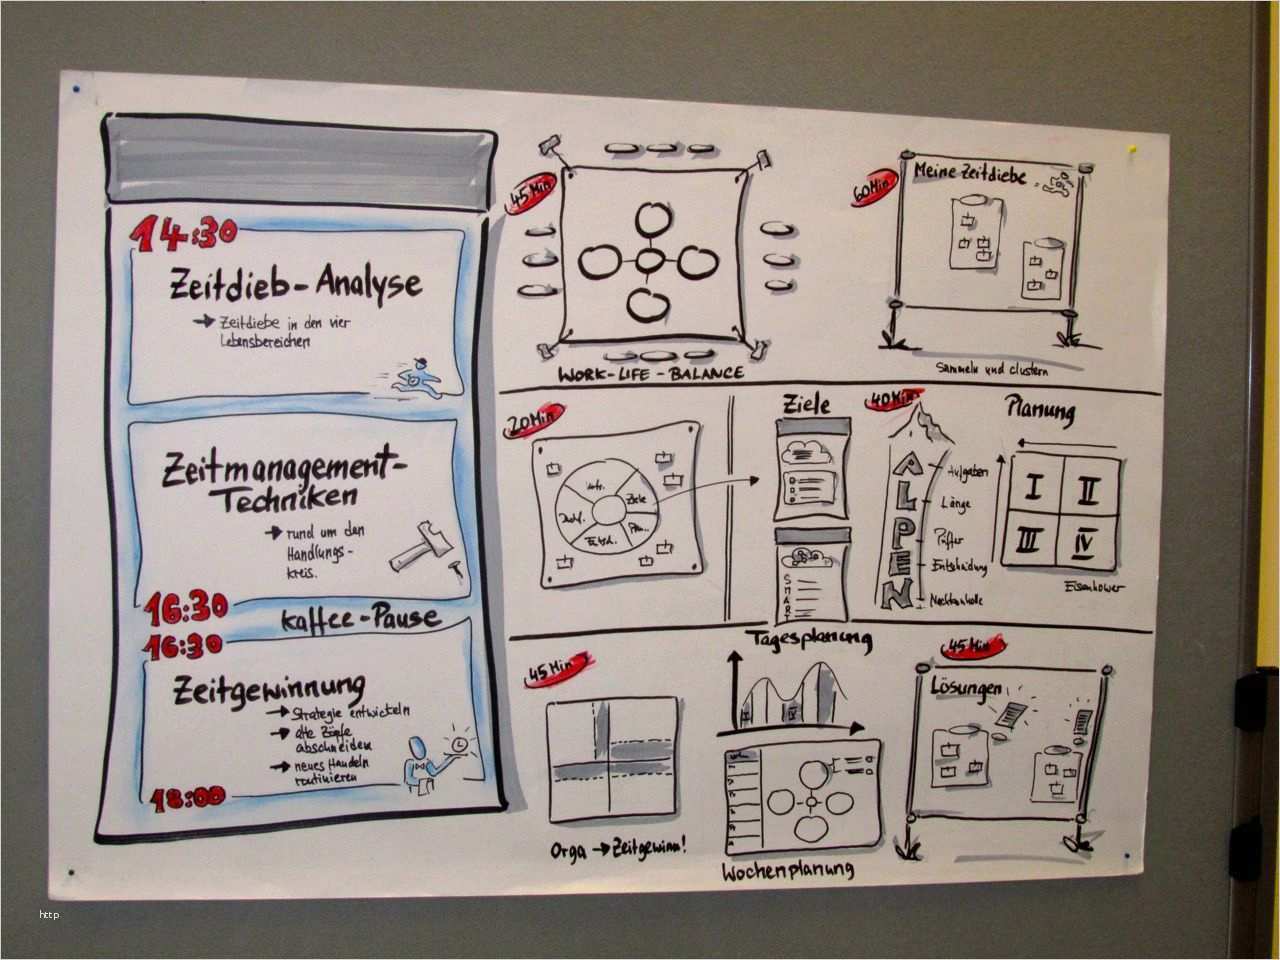 14:30
Zeitdieb-Analyse
→ Zeitdiebe in den vier
Lebensbereichen
Zeitmanagement-
Techniken
→ rund um den
Handlungs-
kreis.
16:30
Kaffee-Pause
16:30
Zeitgewinnung
→ Strategie entwickeln
→ alte Zöpfe
abschneiden
→ neues Handeln
routinieren
18:00
45 Min
WORK-LIFE-BALANCE
60 Min
Meine Zeitdiebe
Sammeln und clustern
20 Min
Ziele
Ziele
SMART
40 Min
Planung
ALPEN
Aufgaben
Länge
Puffer
Entscheidung
Nachkontrolle
I II
III IV
Eisenhower
45 Min
Orga → Zeitgewinn!
Tagesplanung
Wochenplanung
45 Min
Lösungen
http